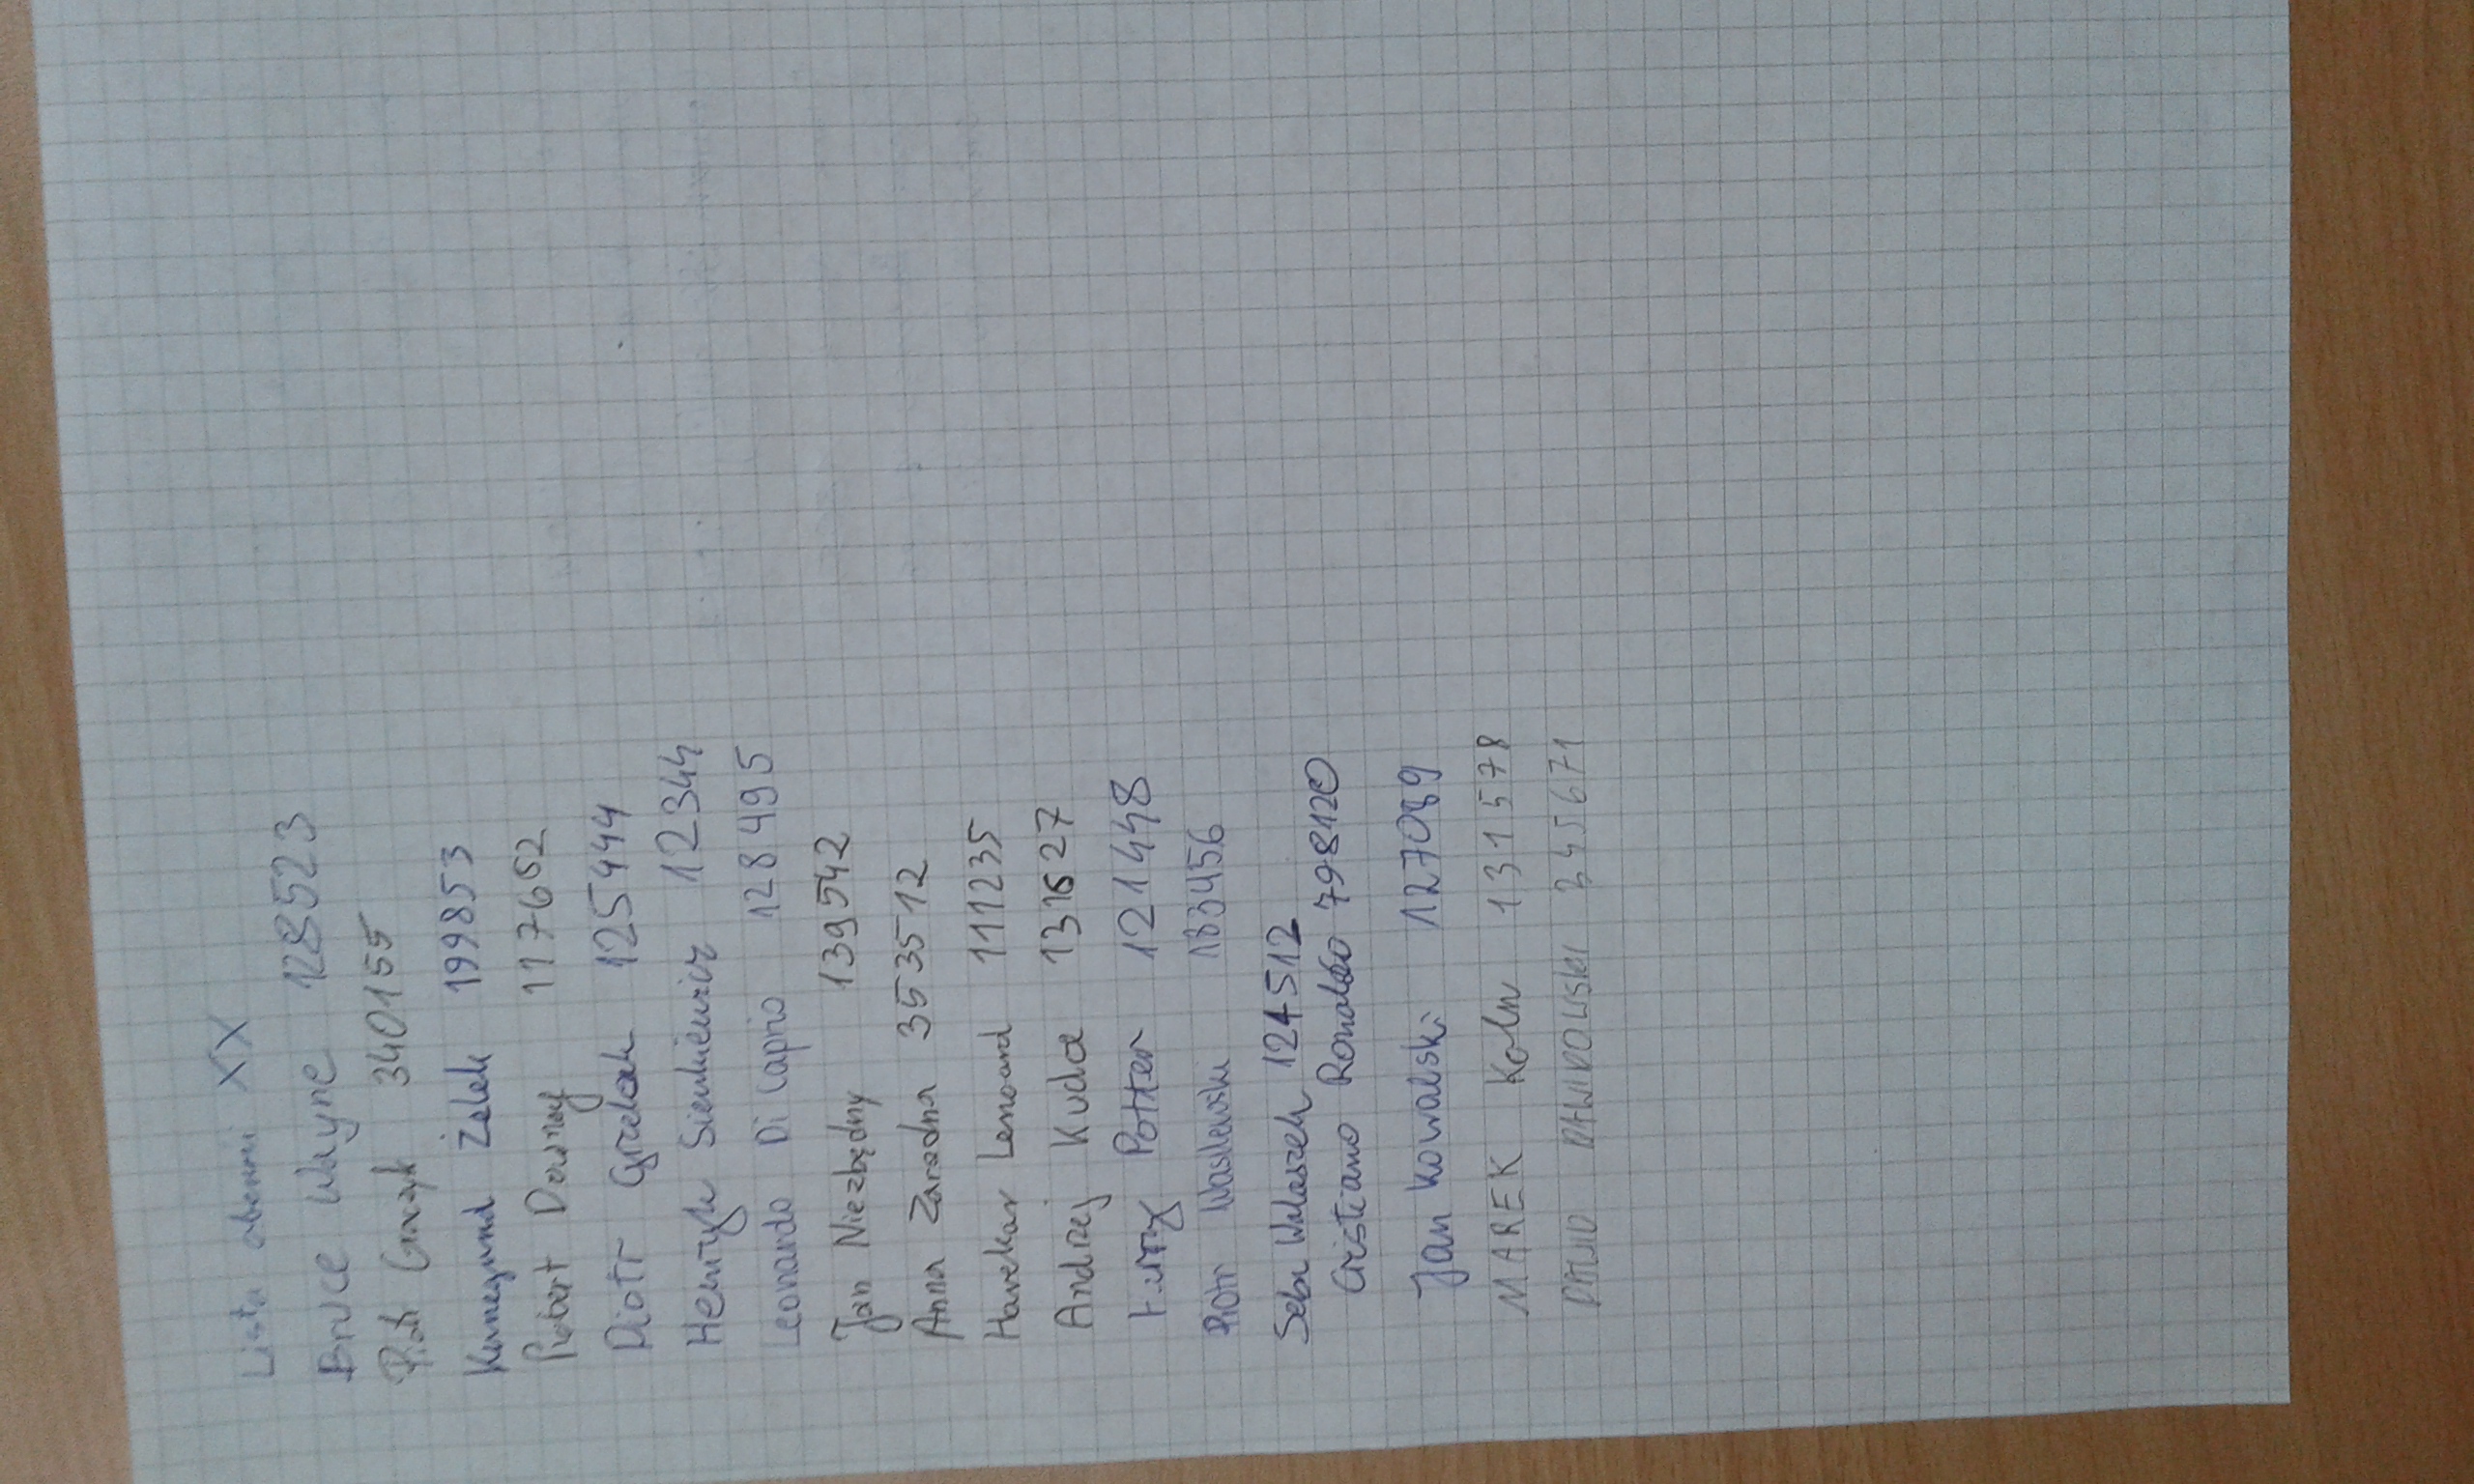 Lista XX
Bruce Wayne 128523
Piotr 340155
Kunegund Żelek 199853
Robert Downey 117652
Piotr Grzelak 125444
Henryk Sienkiewicz 12344
Leonardo Di Caprio 128495
Jan Niezbędny 139542
Anna Zaradna 353512
Harekar Lenoard 111235
Andrzej Kuda 131627
Potter 121448
Piotr Wasilewski 183456
Seba Walaszek 124512
Cristiano Ronaldo 798120
Jan Kowalski 127089
MAREK Koln 131578
DAWID DAWIDOWSKI 345671